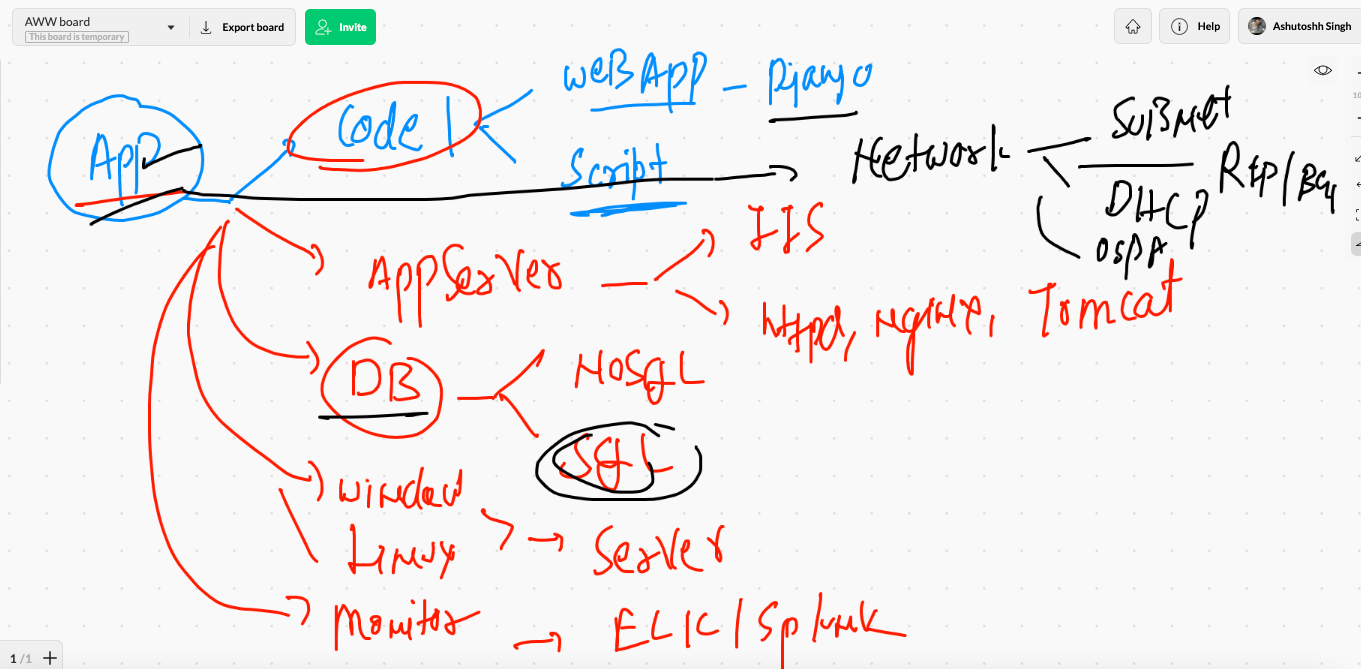 AWW board
This board is temporary
Export board
Invite
Help
Ashutoshh Singh
App
Code
WeB App - Django
Script
Network
SuBNet
DHCP
RIP/BG
AppServer
IIS
httpd, nginx, Tomcat
DB
NoSQL
SQL
Window
Linux
Server
Monitor
ELK / Splunk
1 /1